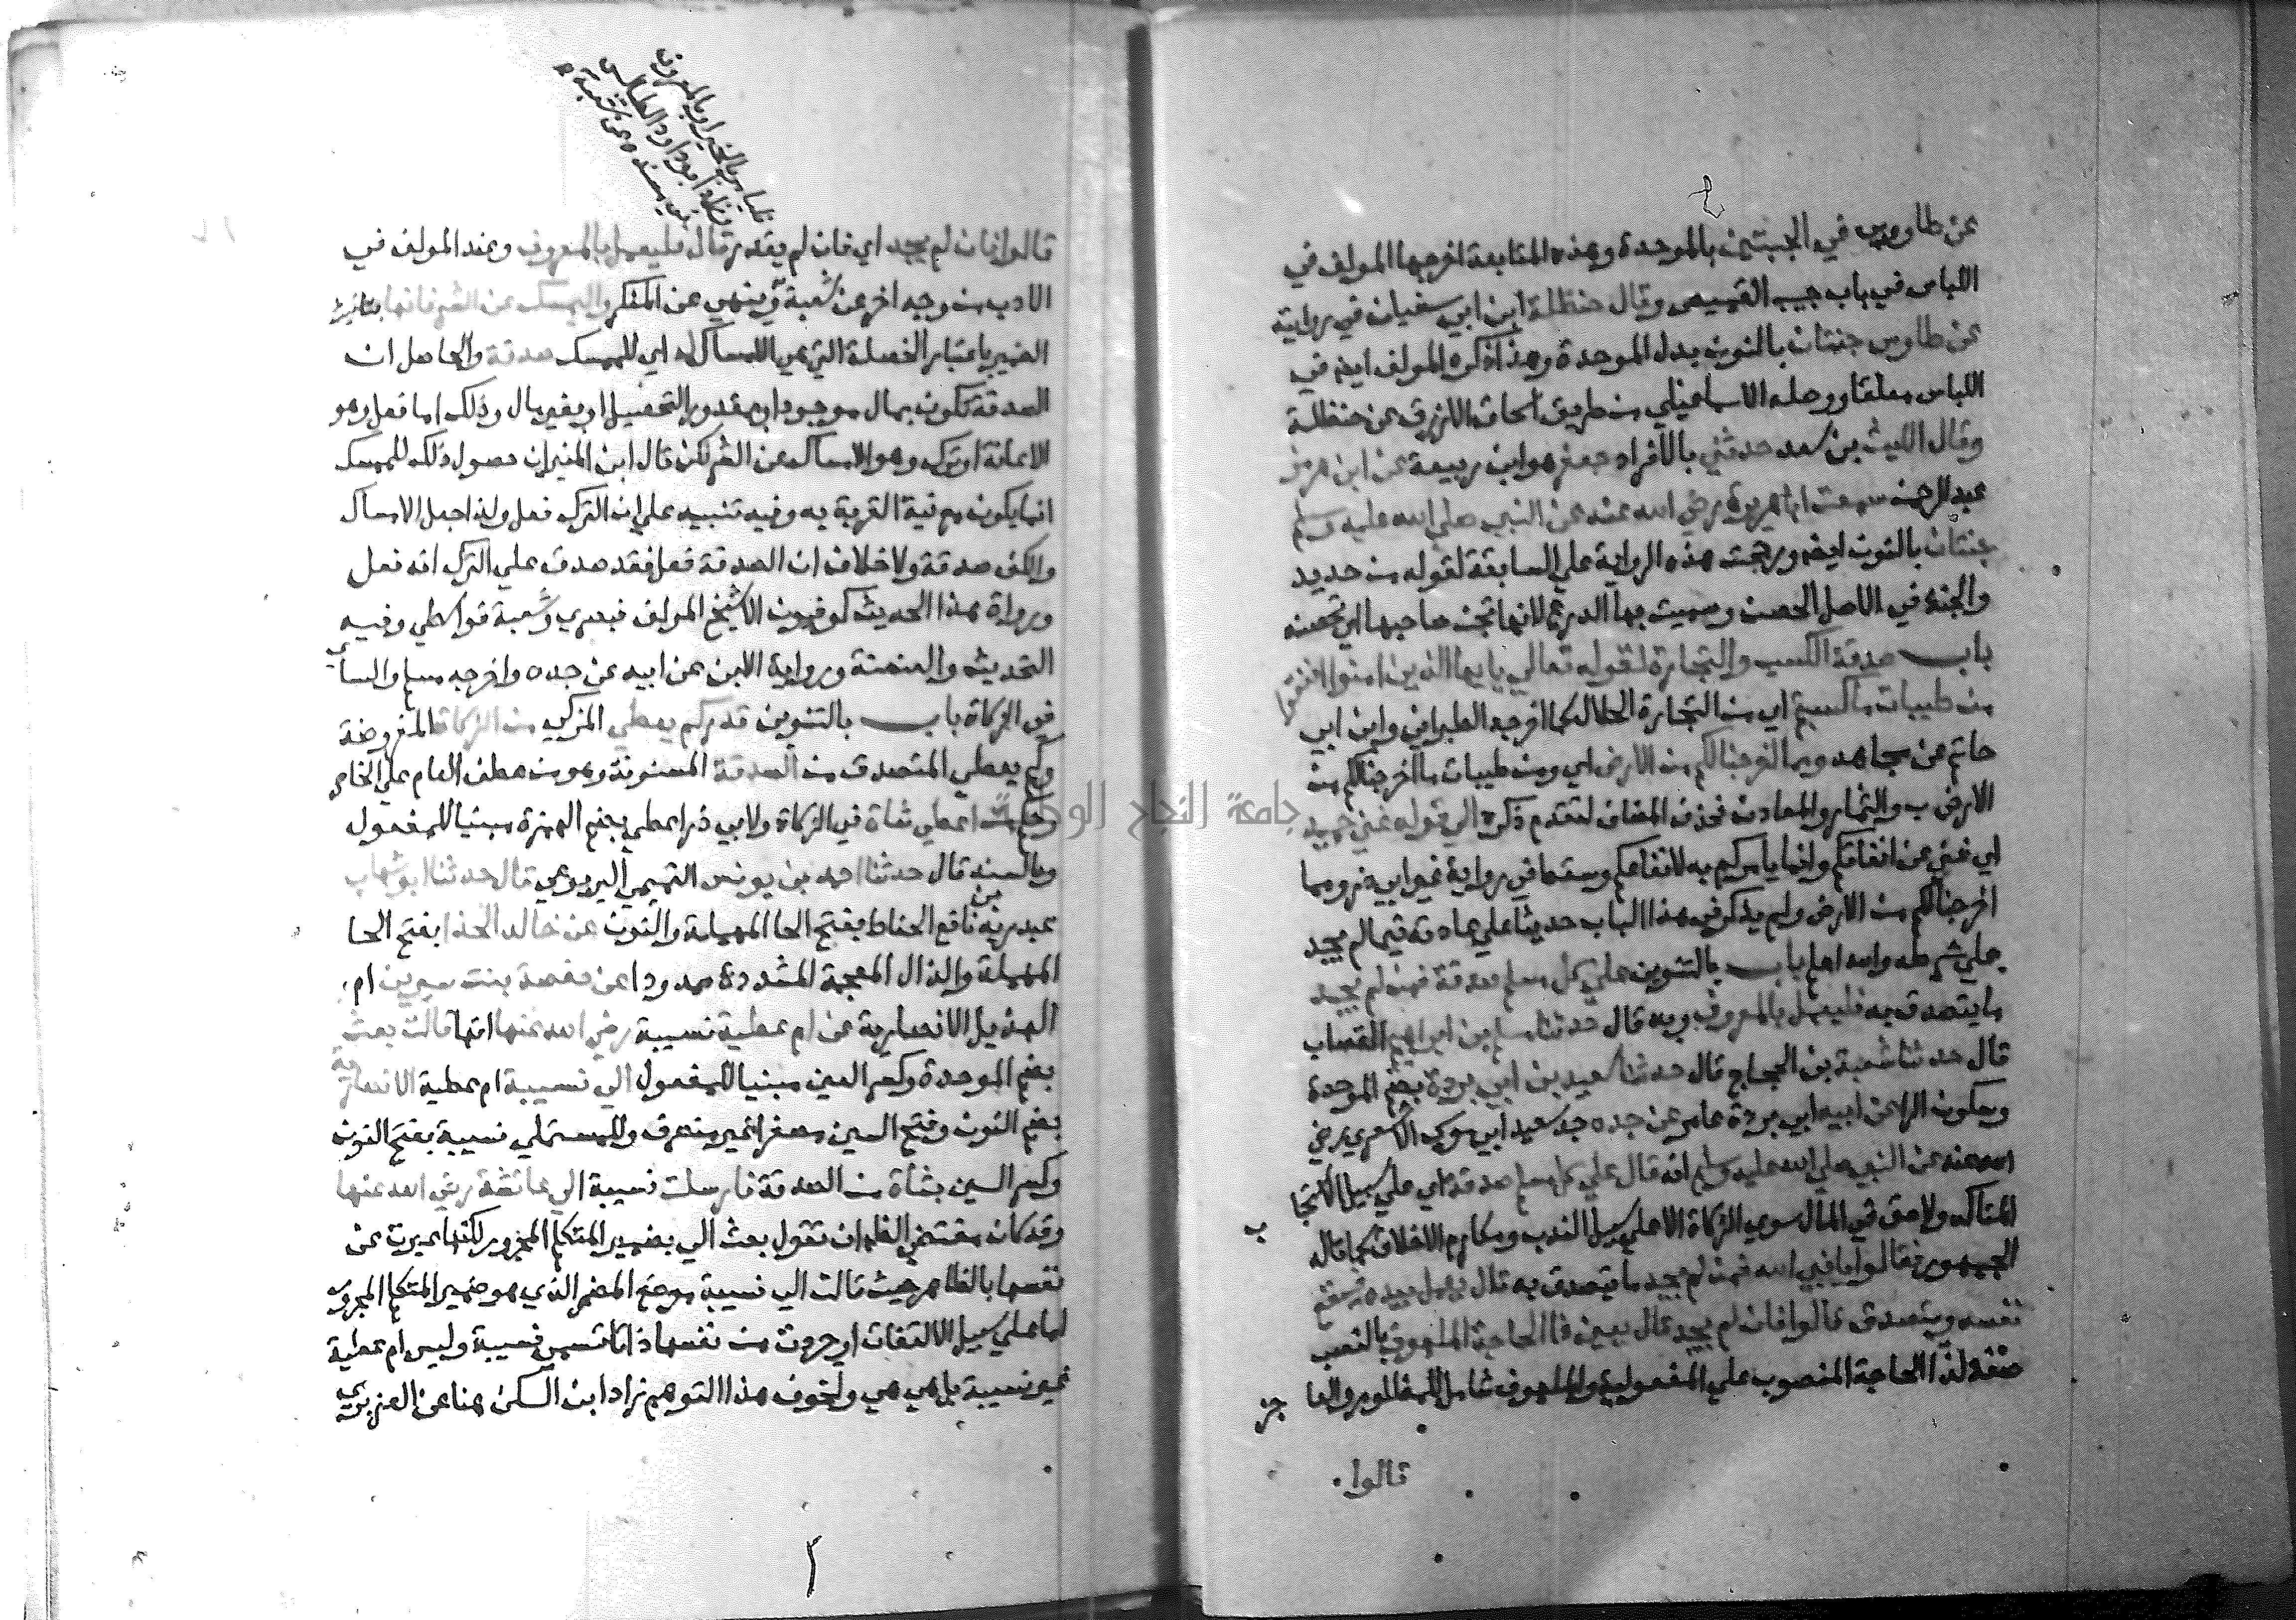 عن طاوس في الجبتين بالموحدة وهذه المتابعة اخرجها المولف في
اللباس في باب جيب القميص وقال حنظلة ابن ابي سفيان في روايته
عن طاوس جنتان بالنون بدل الموحدة وهذا ذكره المولف ايض في
اللباس معلقا ووصله الاسماعيلي من طريق اسحاق الازرق عن حنظلة
وقال الليث بن سعد حدثني بالافراد جعفر هو ابن ربيعة عن ابن هرمز
عبد الرحمن سمعت ابا هريرة رضي الله عنه عن النبي صلي الله عليه وسلم
جنتان بالنون ايض ورجحت هذه الرواية علي السابقة لقوله من حديد
والجنة في الاصل الحصن وسميت بها الدرع لانها تجن صاحبها اي تحصنه
باب صدقة الكسب والتجارة لقوله تعالي يا يها الذين امنوا انفقوا
من طيبات ما كسبتم اي من التجارة الحلال كما اخرجه الطبراني وابن ابي
حاتم عن مجاهد ومما اخرجنا لكم من الارض اي ومن طيبات ما اخرجنا لكم من
الارض ب والثمار والمعادن فحذف المضاف لتقدم ذكره الي قوله غني حميد
اي غني عن انفاقكم وانما يامركم به لانتفاعكم وسقط في رواية غير ابي ذر ومما
اخرجنا لكم من الارض ولم يذكر في هذا الباب حديثا علي عادته فيما لم يجد
علي شرطه والله اعلم باب بالتنوين علي كل مسلم صدقة فمن لم يجد
ما يتصدق به فليعمل بالمعروف وبه قال حدثنا مسلم بن ابراهيم القصاب
قال حدثنا شعبة بن الحجاج قال حدثنا سعيد بن ابي بردة بضم الموحدة
وسكون الرا عن ابيه ابي بردة عامر عن جده جد سعيد ابي موسي الاشعري رضي
الله عنه عن النبي صلي الله عليه وسلم انه قال علي كل مسلم صدقة اي علي سبيل الاستحبا
ب
المتاكد ولا حق في المال سوي الزكاة الا علي سبيل الندب ومكارم الاخلاق كما قاله
الجمهور فقالوا يا نبي الله فمن لم يجد ما يتصدق به قال يعمل بيده فينفع
نفسه ويتصدق قالوا فان لم يجد قال يعين ذا الحاجة الملهوف بالنصب
صفة لذا الحاجة المنصوب علي المفعولية والملهوف شامل للمظلوم والعا
جز
قالوا
فليامر بالخير او بالمعروف
ابو داود الطيالسي
في مسنده عن شعبة
قالوا فان لم يجد اي فان لم يقدر قال فليعمل بالمعروف وعند المولف في
الادب من وجه اخر عن شعبة وينهي عن المنكر وليمسك عن الشر فانها بتانيث
الضمير باعتبار الخصلة التي هي الامساك له اي للممسك صدقة والحاصل ان
الصدقة تكون بمال موجود او بمقدور التحصيل او بغير مال وذلك اما فعل وهو
الاعانة او ترك وهو الامساك عن الشر لكن قال ابن المنير ان حصول ذلك للممسك
انما يكون مع نية القربة به وفيه تنبيه علي ان الترك فعل ولذا جعل الامساك
والكف صدقة ولا خلاف ان الصدقة فعل فقد صدق علي الترك انه فعل
ورواة هذا الحديث كوفيون الا شيخ المولف فبصري وشعبة فواسطي وفيه
التحديث والعنعنة ورواية الابن عن ابيه عن جده واخرجه مسلم والنسأي
في الزكاة باب بالتنوين قدر كم يعطي المزكي من الزكاة المفروضة
وكم يعطي المتصدق من الصدقة المسنونة وهو من عطف العام علي الخاص
وحكم من اعطي شاة في الزكاة ولابي ذر اعطي بضم الهمزة مبنيا للمفعول
وبالسند قال حدثنا احمد بن يونس التميمي اليربوعي قال حدثنا ابو شهاب
عبد ربه بن نافع الحناط بفتح الحا المهملة والنون عن خالد الحذا بفتح الحا
المهملة والذال المعجمة المشددة ممدودا عن حفصة بنت سيرين ام
الهذيل الانصارية عن ام عطية نسيبة رضي الله عنها انها قالت بعث
بضم الموحدة وكسر العين مبنيا للمفعول الي نسيبة ام عطية الانصارية
بضم النون وفتح السين مصغرا غير منصرف وللمستملي نسيبة بفتح النون
وكسر السين بشاة من الصدقة فارسلت نسيبة الي عائشة رضي الله عنها
وقد كان مقتضي الظاهر ان تقول بعث الي بضمير المتكلم المجرور لكنها عبرت عن
نفسها بالظاهر حيث قالت الي نسيبة موضع المضمر الذي هو ضمير المتكلم المجرور
اما علي سبيل الالتفات او جردت من نفسها ذاتا تسمي نسيبة وليس ام عطية
غير نسيبة بل هي هي ولخوف هذا التوهم زاد ابن السكن هنا عن الفربري
جامعة النجاح الوطنية